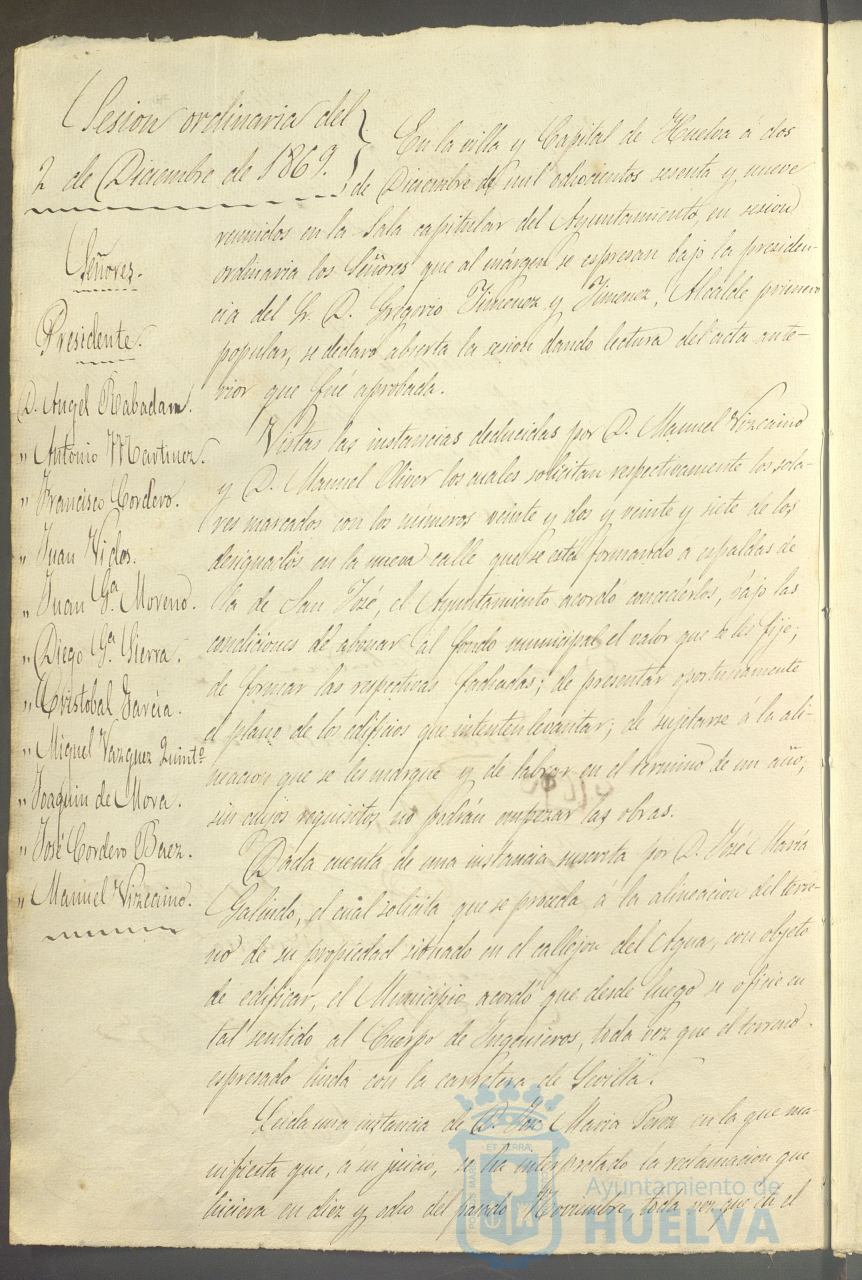 Sesion ordinaria del
2 de Diciembre de 1869.
Señores.
Presidente.
D. Angel Rabadan.
" Antonio Martinez.
" Francisco Cordero.
" Juan Vides.
" Juan Gª Moreno.
" Diego Gª Sierra.
" Cristobal García.
" Miguel Vazquez Quintº
" Joaquin de Mora.
" José Cordero Baez.
" Manuel Vizcaino.
En la villa y Capital de Huelva á dos
de Diciembre de mil ochocientos sesenta y nueve
reunidos en la Sala capitular del Ayuntamiento, en sesion
ordinaria los Señores que al márgen se espresan bajo la presiden-
cia del Sr. D. Gregorio Jimenez y Jimenez, Alcalde primero
popular, se declaró abierta la sesion dando lectura del acta ante-
rior que fué aprobada.
Vistas las instancias deducidas por D. Manuel Vizcaino
y D. Manuel Oliver los cuales solicitan respectivamente los sola-
res marcados con los numeros veinte y dos y veinte y siete de los
designados en la nueva calle que se está formando a espaldas de
la de San José, el Ayuntamiento acordó concederlos, bajo las
condiciones de abonar al fondo municipal el valor que se les fije;
de formar las respectivas fachadas; de presentar oportunamente
el plano de los edificios que intenten levantar; de sujetarse á la ali-
neacion que se les marque y de labrar en el termino de un año,
sin cuyos requisitos no podrán empezar las obras.
Dada cuenta de una instancia suscrita por D. José María
Galindo, el cual solicita que se proceda á la alineacion del terre-
no de su propiedad situado en el callejon del Agua, con objeto
de edificar, el Municipio acordó que desde luego se oficie en
tal sentido al Cuerpo de Ingenieros, toda vez que el terreno
espresado linda con la carretera de Sevilla.
Leida una instancia de D. José Maria Perez en la que ma-
nifiesta que, a su juicio, se ha interpretado la reclamacion que
hiciera en diez y ocho del pasado Noviembre, toda vez que en el
Ayuntamiento de
HUELVA